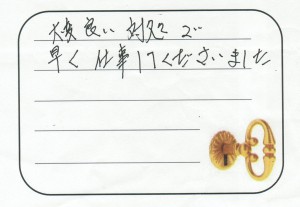 大変良い対処で
早く仕事してくださいました